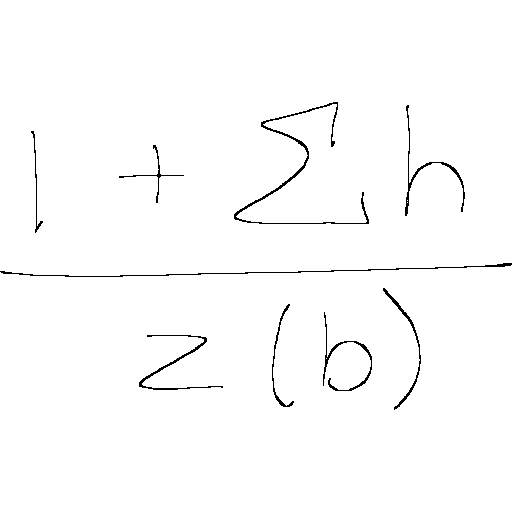 \frac{1 + \sum h}{z(b)}